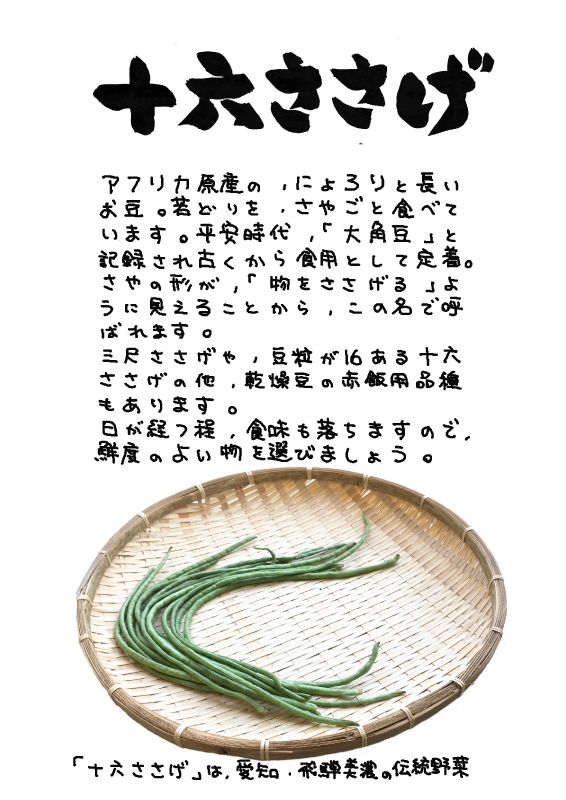 十六ささげ
アフリカ原産の,にょろりと長い
お豆。若どりを,さやごと食べて
います。平安時代,「大角豆」と
記録され古くから食用として定着。
さやの形が,「物をささげる」よ
うに見えることから,この名で呼
ばれます。
三尺ささげや,豆粒が16ある十六
ささげの他,乾燥豆の赤飯用品種
もあります。
日が経つ程,食味も落ちますので,
鮮度のよい物を選びましょう。
「十六ささげ」は,愛知・飛騨美濃の伝統野菜